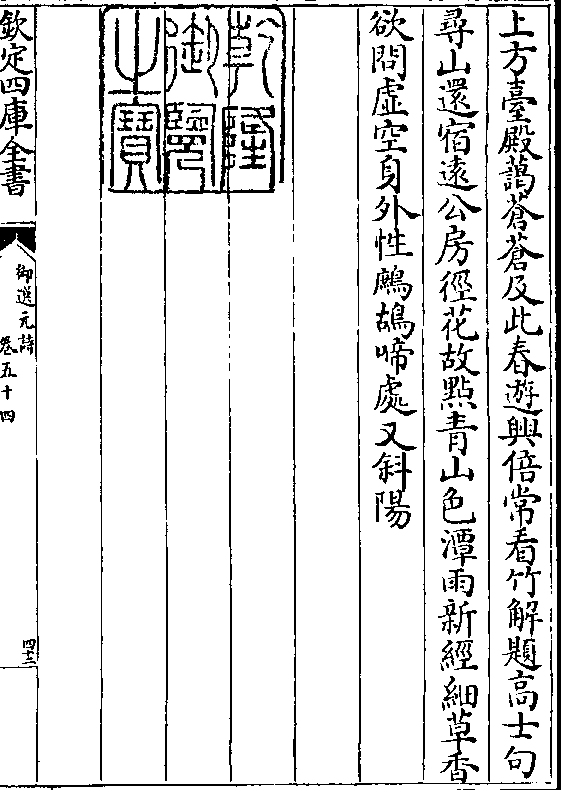 上方臺殿藹蒼蒼及此春遊興倍常看竹解題高士句
尋山還宿遠公房徑花故點青山色潭雨新經細草香
欲問虛空身外性鷓鴣啼處又斜陽
乾隆
御覽
之寶
欽定四庫全書
御選元詩
卷五十四
四十三